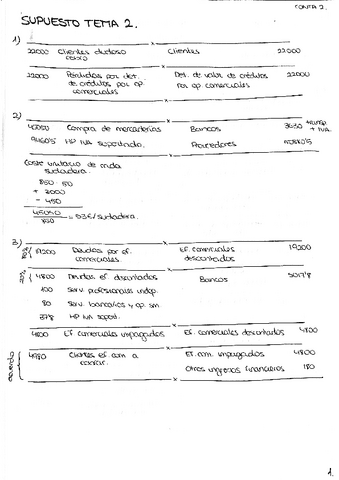 CONTA 2.
SUPUESTO TEMA 2.
1)
22000 Clientes dudoso Clientes 22000
cobro
22000 Pérdidas por det. Det. de valor de créditos 22000
de créditos por op. por op. comerciales
comerciales
2)
45050 Compra de mercaderías Bancos 3630
+ IVA
HP IVA soportado Proveedores
Coste unitario de cada
sudadera.
850 · 50
+ 3000
- 450
45050 = 53€/sudadera.
850
3)
80% 19200 Deudas por ef. Ef. comerciales 19200
comerciales descontados
20% 4800 Deudas ef. descontados Bancos
100 Serv. profesionales indep.
80 Serv. bancarios y op. sm.
37'8 HP IVA soport.
4800 Ef comerciales impagados Ef. comerciales descontados 4800
acuerdo 4980 Clientes ef. com. a Ef. com. impagados 4800
cobrar. Otros ingresos financieros 180
1.